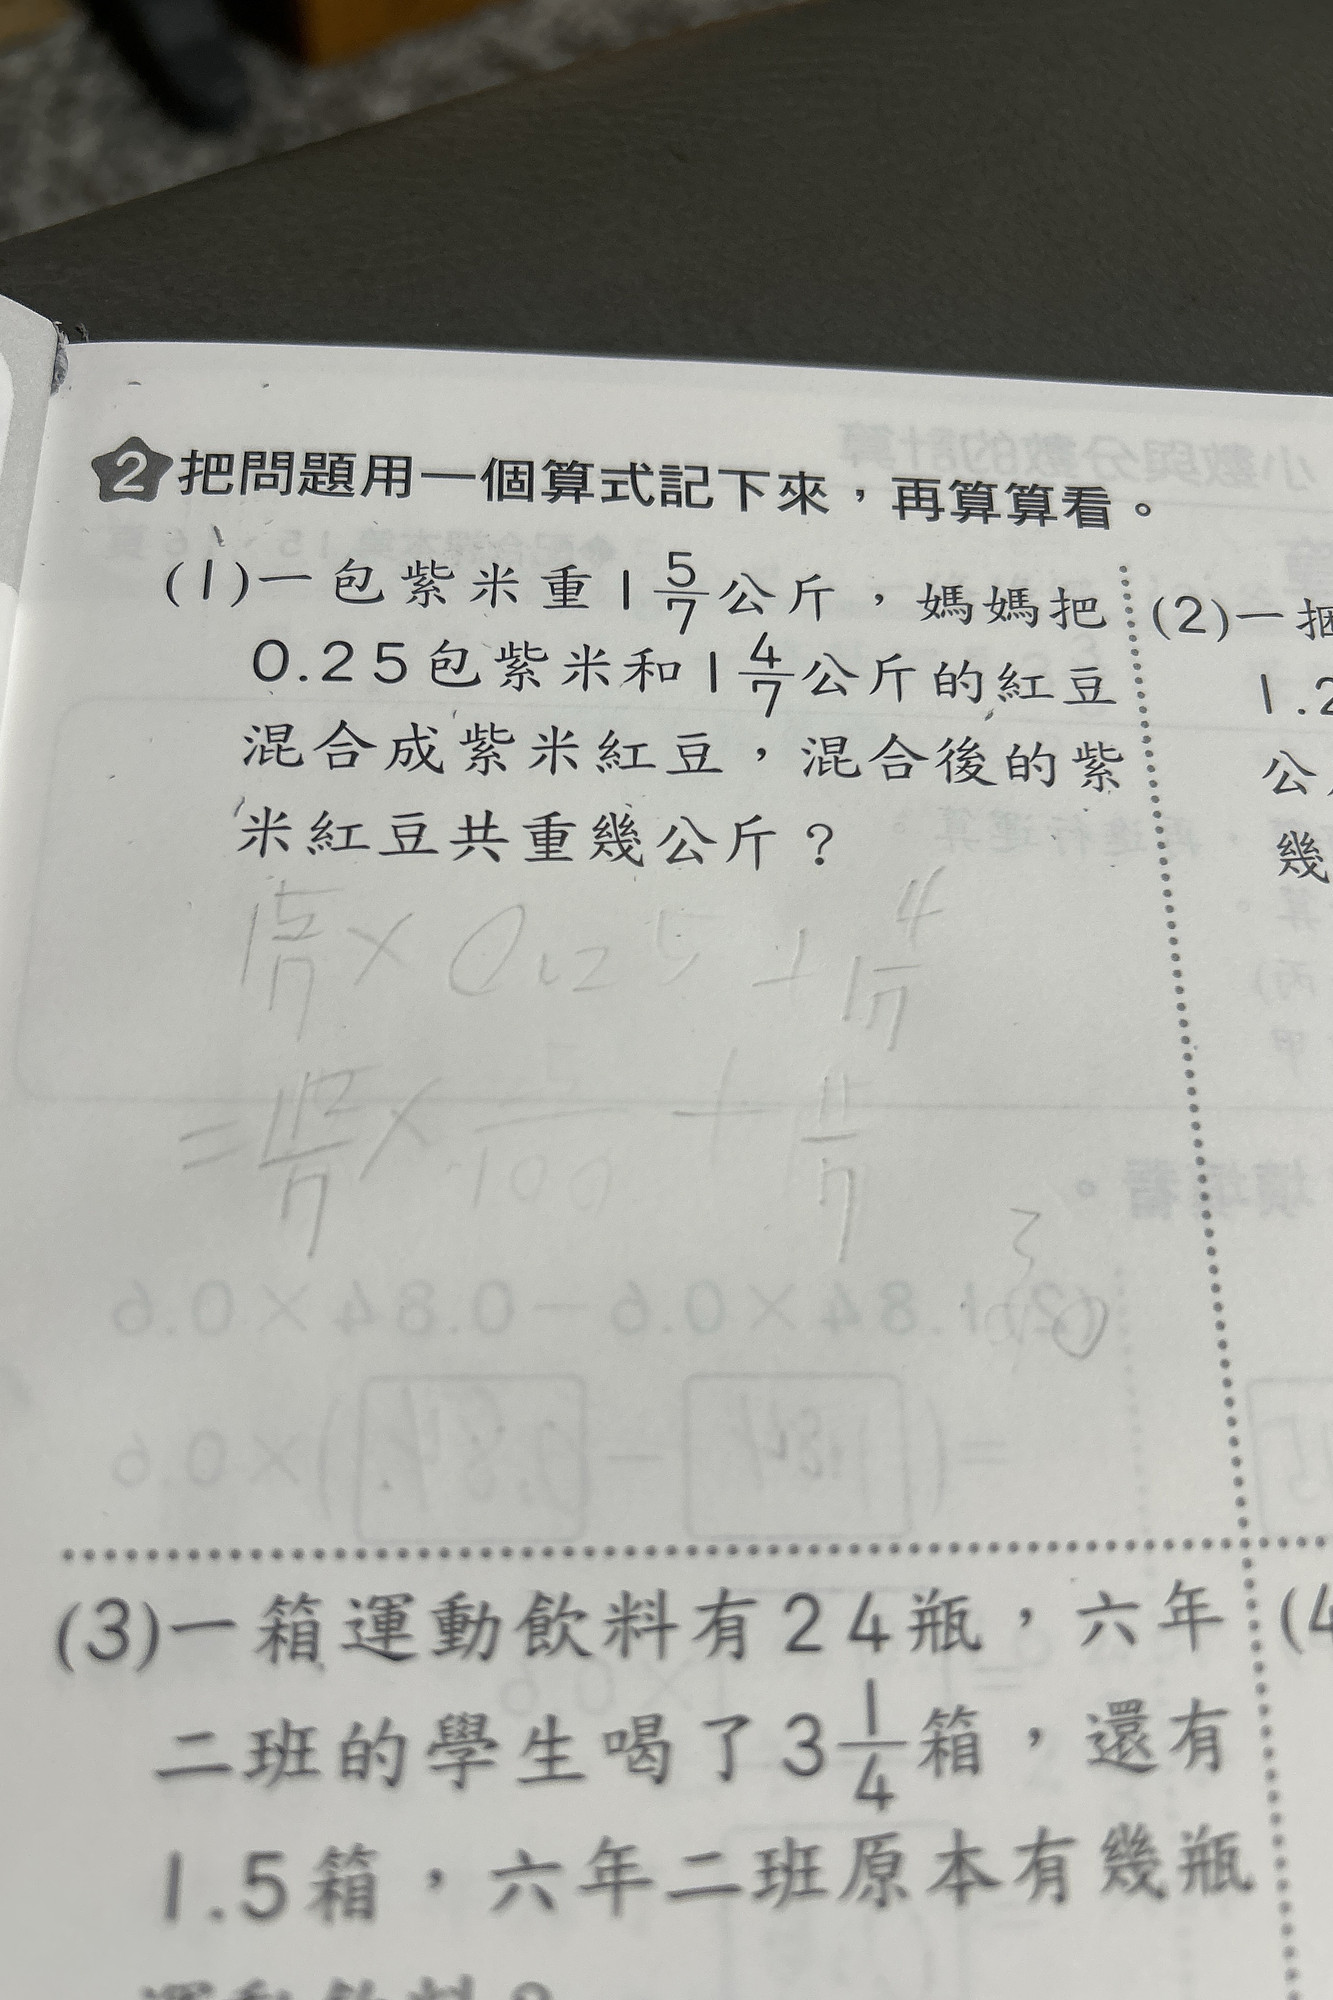 2 把問題用一個算式記下來，再算算看。
(1)一包紫米重1 5/7 公斤，媽媽把
0.25包紫米和1 4/7 公斤的紅豆
混合成紫米紅豆，混合後的紫
米紅豆共重幾公斤？
1 5/7 × 0.25 + 1 4/7
= 12/7 × /100 + 11/7
(2)一捆
1.2
公
幾
(3)一箱運動飲料有24瓶，六年
二班的學生喝了3 1/4 箱，還有
1.5箱，六年二班原本有幾瓶
運動飲料？
(4